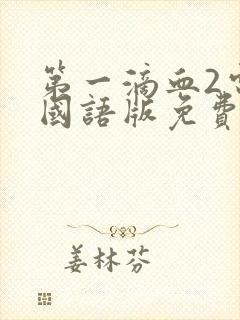 第一滴血2
國語版免費
姜林芬